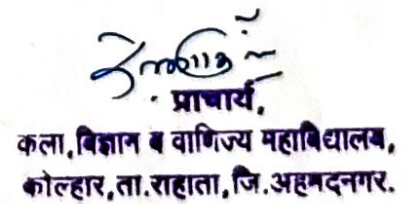 प्राचार्य,
कला,विज्ञान व वाणिज्य महाविद्यालय,
कोल्हार,ता.राहाता,जि.अहमदनगर.